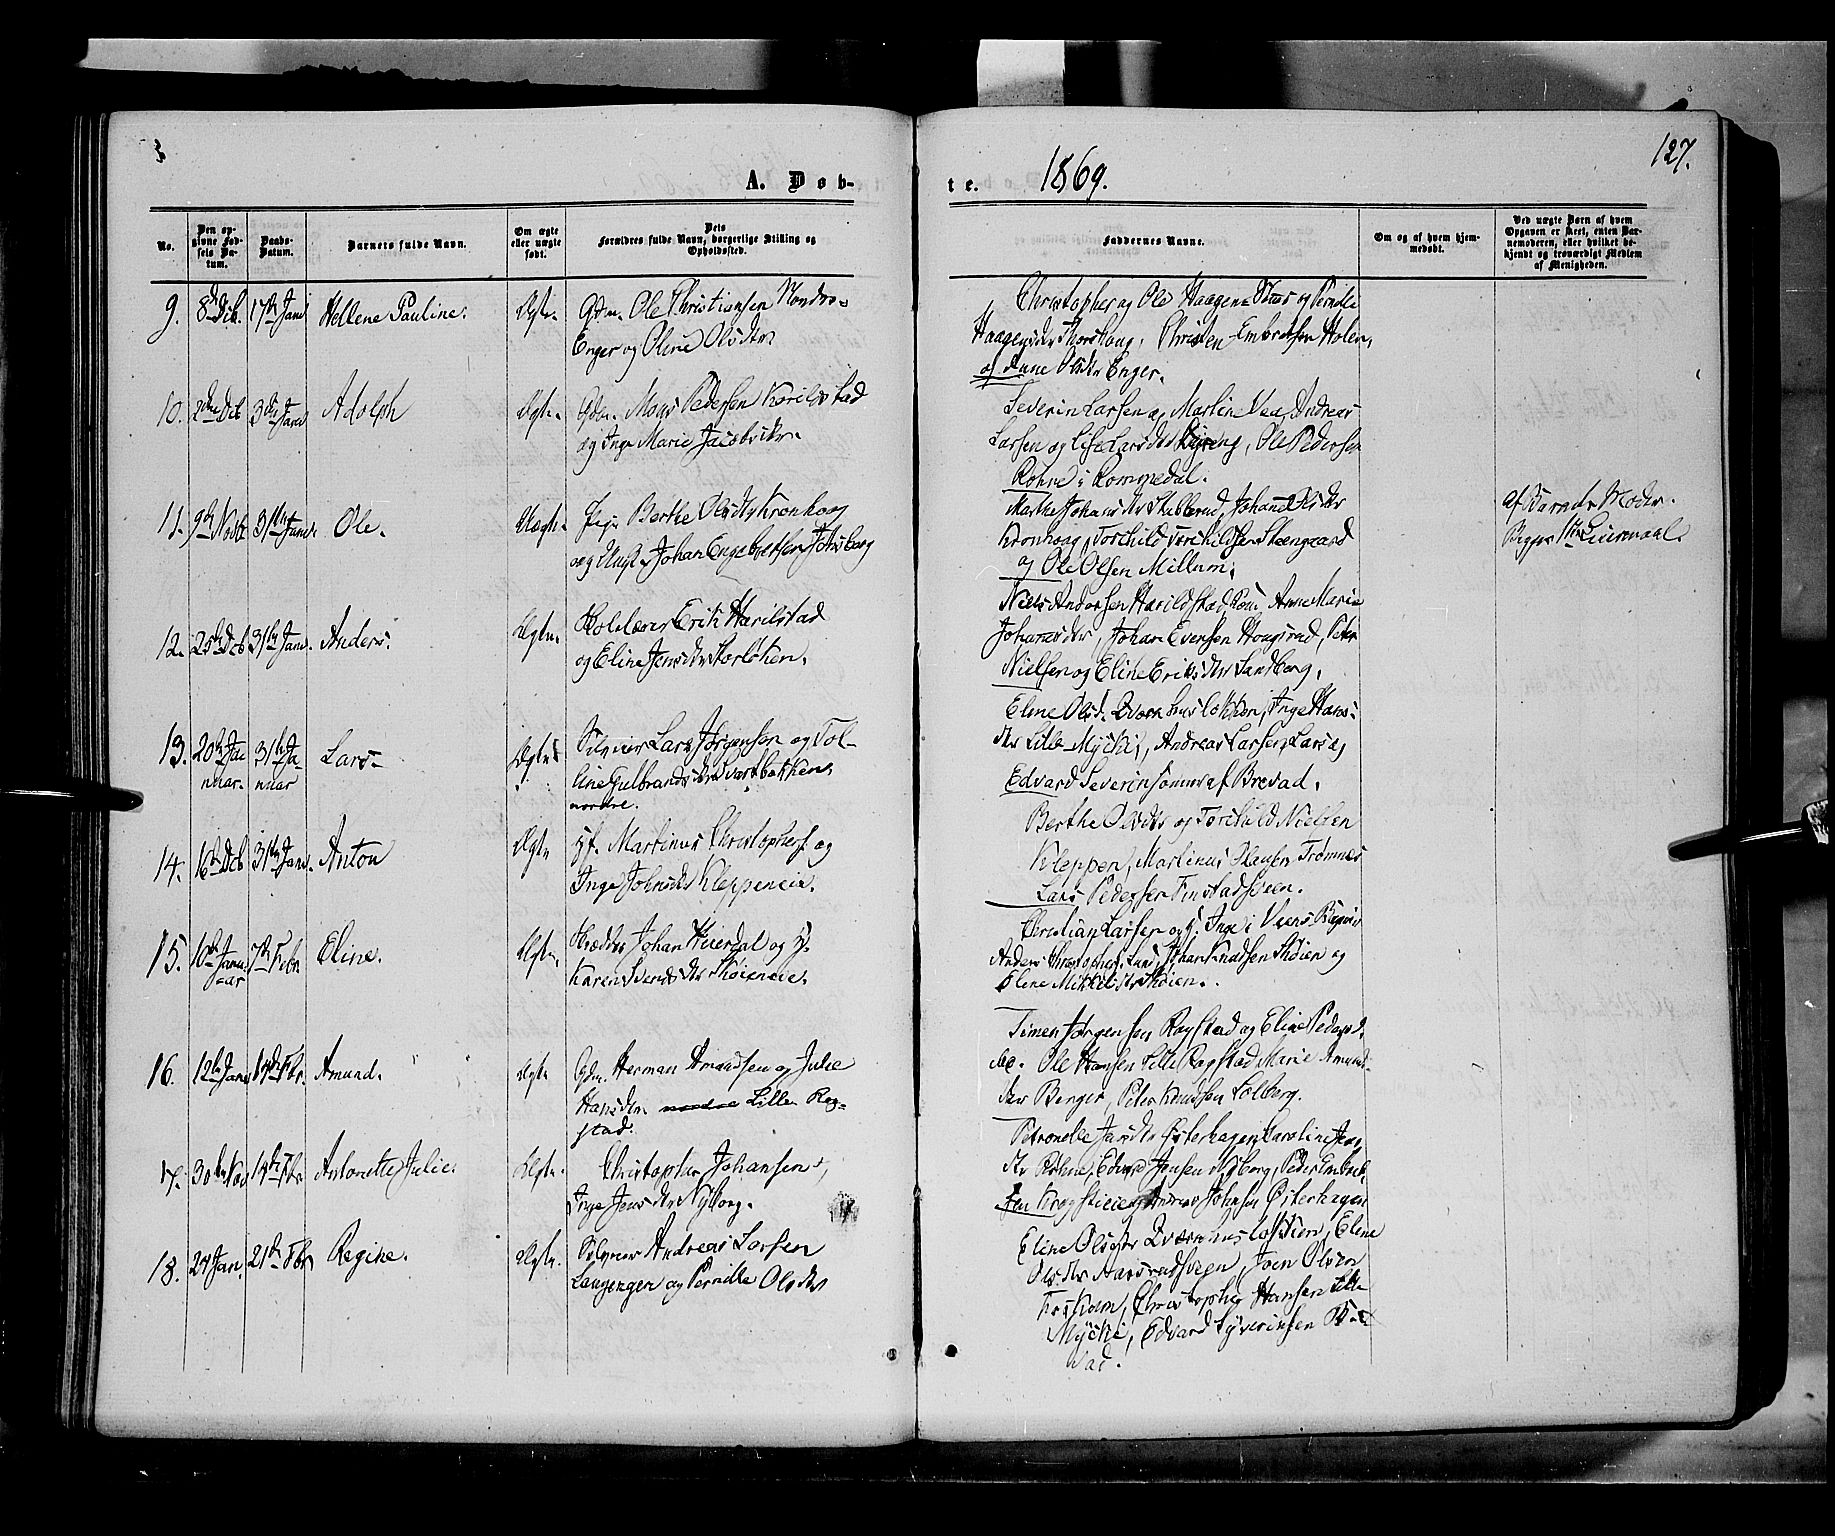 127.
A. Døb-
te. 1869.
No.
Den op-
givne Fød-
sels Da-
tum.
Daabs-
Datum.
Barnets fulde Navn.
Om ægte
eller uægte
født.
Dets
Forældres fulde Navn, borgerlige Stilling og
Opholdssted.
Faddernes Navne.
Om og af hvem hjem-
medøbt.
Ved uægte Børn af hvem
Opgaven er skeet, enten Bar-
nemoderen, eller hvilket be-
kjendt og troværdigt Medlem
af Menigheden.
9. 8de Dcb. 17de Janr Hellene Pauline. Ægte. Gdm. Ole Christiansen Nordre-
Enger og Oline Olsdtr
Christopher og Ole Haagens Thor og Pernille
Haagensdtr Thorshaug, Christen Embretsen Holen,
og Anne Olsdtr Enger.
10. 2den Dcb 3die Janr Adolph Ægte. Gdm. Mons Pedersen Harildstad
og Inge Marie Jacobsdtr.
Severin Larsen og Martin Vea Andreas
Larsen og Lise Larsdtr Ryeng, Ole Pedersen
Rohne i Rommedal.
11. 9de Novbr 31te Janr. Ole. Uægte. Pige Berthe Olsdtr Kronhaag
og Ungk. Johan Engebretsen Johsberg
Marthe Johansdtr Stubberud, Johanne Olsdtr
Kronhaag, Torchild Torchildsen Skeengaard
og Ole Olsen Millum.
af Barnets Moder.
Begges 1ste Leiermaal.
12. 25de Dcb 31te Janr. Anders. Ægte. Skolelærer Erik Harilstad
og Eline Jensdtr Storløken.
Niels Andersen Harildstad, Anne Marie
Johansdtr, Johan Evensen Haagsrud, Peter
Nielsen og Eline Eriksdtr Sandberg.
13. 20de Ja-
nuar. 31te Ja-
nuar Lars Ægte Selveier Lars Jørgensen og Tol-
line Gulbrandsdtr Svartbekken
nordre.
Eline Olsd. Qværnhusløkken, Inge Hans-
dtr Lille-Mycki, Andreas Larsen, Lars og
Edvard Severinsønner af Brevad.
14. 16de Dcb 31te Janr. Anton Ægte Hf. Martinus Christophers. og
Inge Johnsdtr Kleppeneie.
Berthe Olsdtr og Torchild Nielsen
Kleppen, Martinus Olausen Trømnes
Lars Pedersen Finstadsveen.
15. 10de Janu-
ar 7de Febr Eline. Ægte. Skrædder Johan Heierdal og H.
Karen Svendsdtr Skøieneie.
Christian Larsen og H. Inge i Veens
Anders Christophers. Lund, Johan Knudsen Skøien og
Eline Mikkelsdtr Skøien.
16. 12te Janr 14de Fbr. Amund. Ægte Gdm. Herman Amundsen og Julie
Hansdtr. nordre Lille Rog-
stad.
Simen Jørgensen Rogstad og Eline Pedersd.
Ole Hansen Lille Rogstad, Marie Amunds-
dtr Berger, Peter Knudsen Solberg.
17. 30te Nov 14de Fbr Antonette Julie. Ægte. Christopher Johansen,
Inge Jensdtr Nyborg.
Petronelle Jansdtr Østerhagen, Karoline Jens
dtr Rohne, Edvard Jensen Nyborg, Peder Embret
sen Krogstieie og Andreas Johnsen Østerhagen
18. 24 Jan. 21de Fbr Regine. Ægte. Selveier Andreas Larsen
Langengen og Pernille Olsdtr
Eline Olsdtr Qværnhusløkken, Eline
Olsdtr Aasrudsveen, Joen Olsen
Torsholm, Christopher Hansen Lille
Mycki, Edvard Syverinsen Bre-
vad.